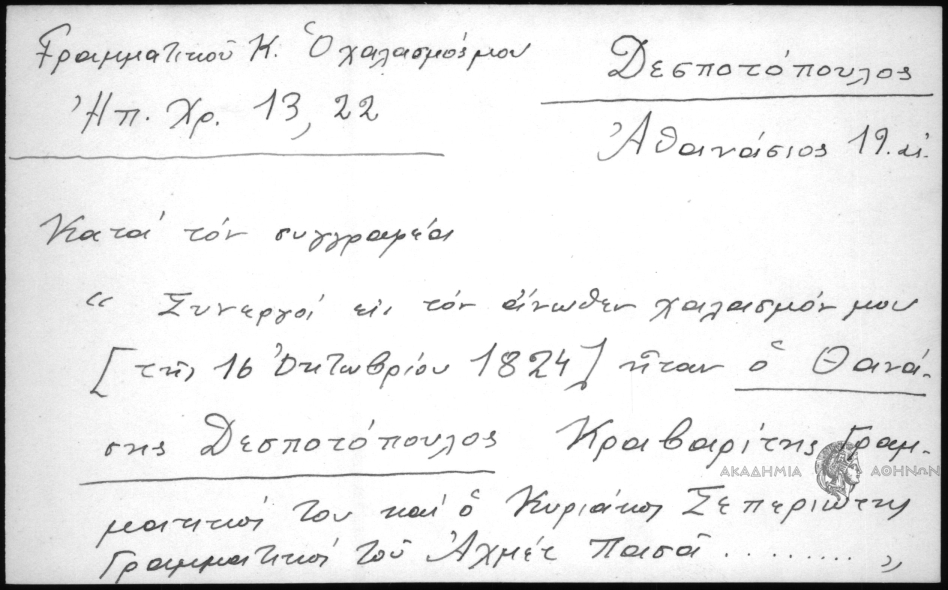 Γραμματικοῦ Κ. Ὁ χαλασμός μου
Ἠπ. Χρ. 13, 22
Δεσποτόπουλος
Ἀθανάσιος 19. αἰ.
Κατά τόν συγγραφέα
“ Συνεργοί εἰς τόν ἄνωθεν χαλασμόν μου
[τῆς 16 Ὀκτωβρίου 1824] ἦταν ὁ Θανά-
σης Δεσποτόπουλος Κραβαρίτης Γραμ-
ματικός του καί ὁ Κυριάκος
Γραμματικός τοῦ Ἀχμέτ Πασᾶ ......... „
ΑΚΑΔΗΜΙΑ ΑΘΗΝΩΝ